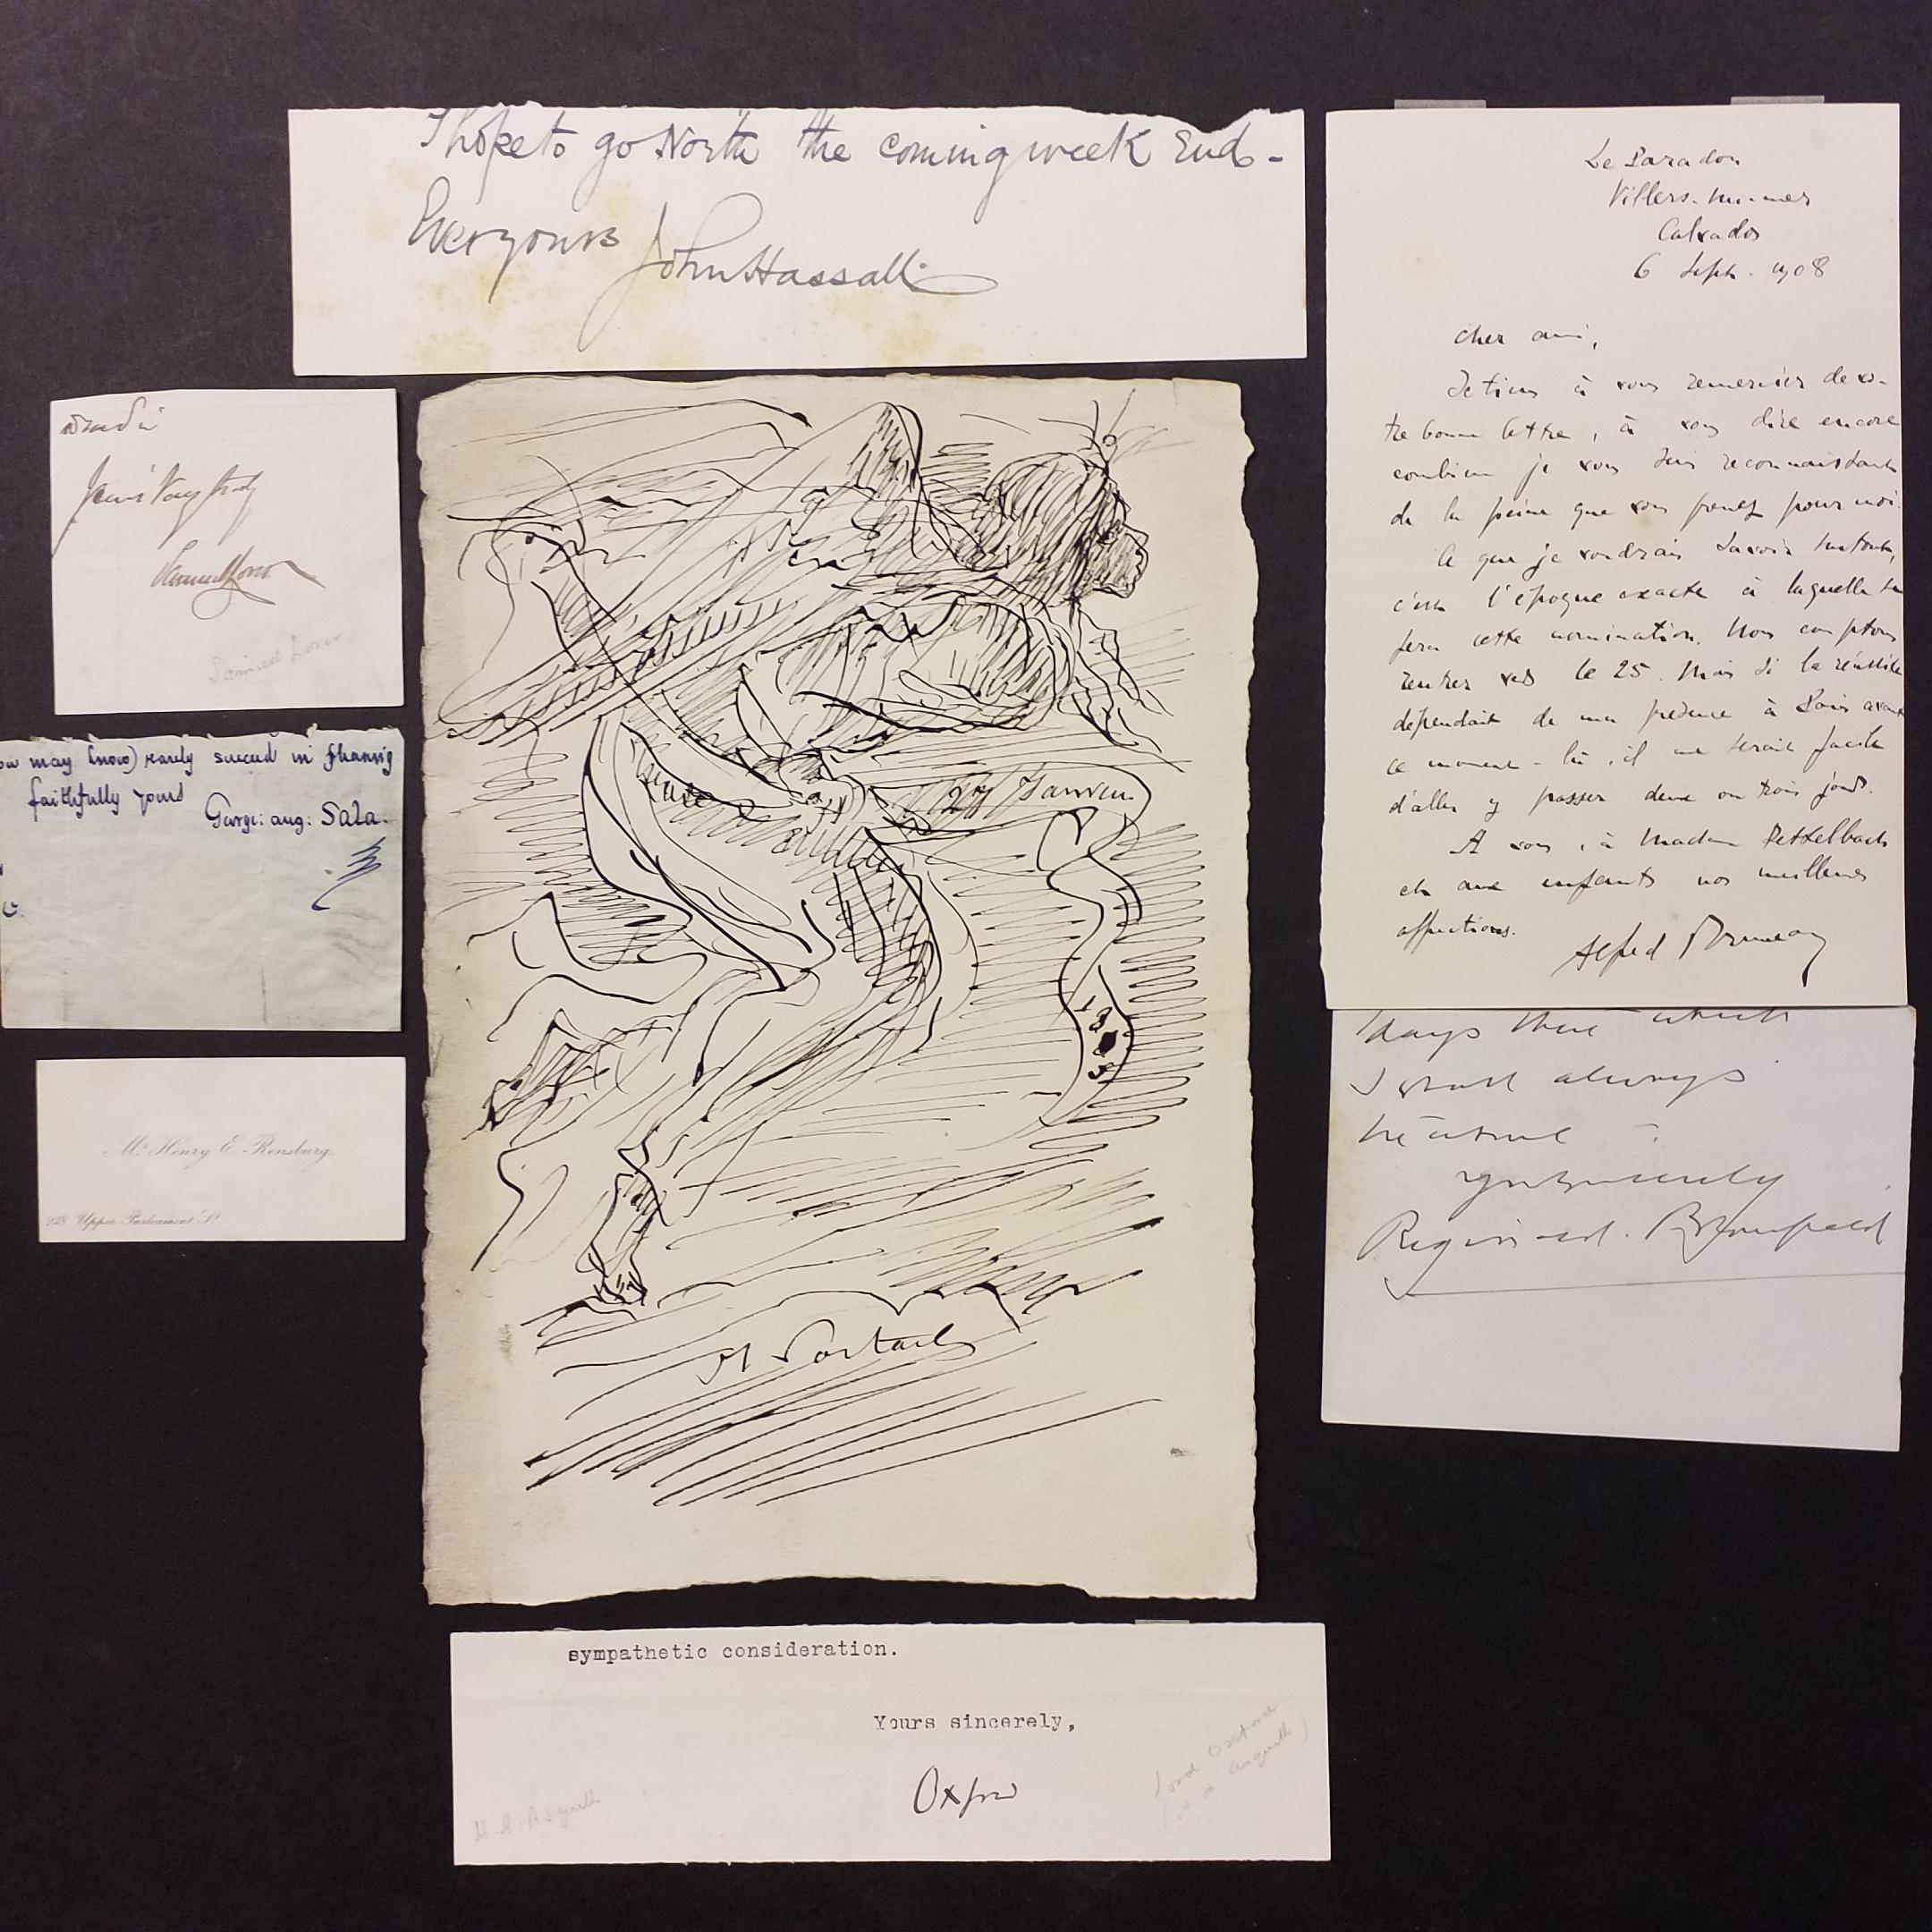 I hope to go North the coming week End -
Ever yours John Hassall
Samuel Lover
Samuel Lover
ow may know) rarely succeed in shaving
faithfully yours
George: Aug: Sala.
Mr Henry E. Rensburg.
Upper Parliament St
27 Janvier
1865
sympathetic consideration.
Yours sincerely,
Oxford
H. H. Asquith
(Lord Oxford & Asquith)
Le Paradou
Villers-sur-mer
Calvados
6 Sept. 1908
Cher ami,
Je tiens à vous remercier de vo-
tre bonne lettre, à vous dire encore
combien je vous suis reconnaissant
de la peine que vous prenez pour moi.
Ce que je voudrais savoir surtout,
c'est l'époque exacte à laquelle se
fera cette nomination. Nous comptons
rentrer vers le 25. Mais si la réussite
dépendait de ma présence à Paris avant
ce moment-là, il me serait facile
d'aller y passer deux ou trois jours.
A vous, à Madame Pettelbach
et aux enfants nos meilleures
affections.
Alfred Bruneau
days that which
I shall always
treasure
yrs sincerely
Reginald. Blomfield